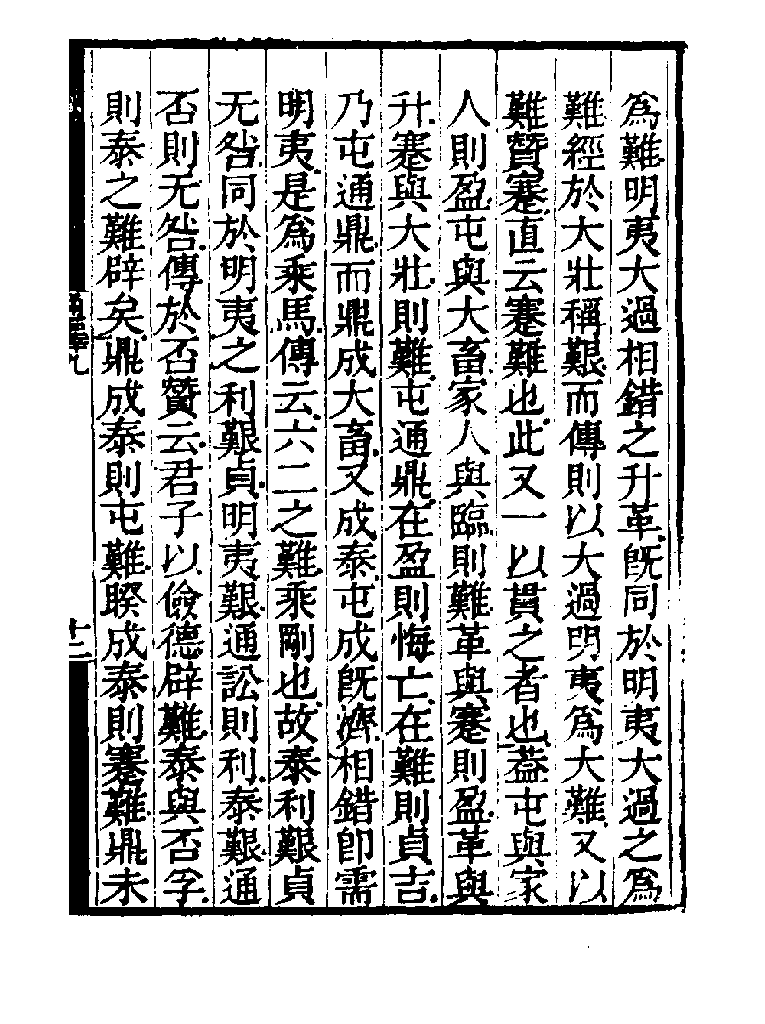 為難明夷大過相錯之升革既同於明夷大過之為
難經於大壯稱艱而傳則以大過明夷為大難又以
難贊蹇直云蹇難也此又一以貫之者也葢屯與家
人則盈屯與大畜家人與臨則難革與蹇則盈革與
升蹇與大壯則難屯通鼎在盈則悔亡在難則貞吉
乃屯通鼎而鼎成大畜又成泰屯成既濟相錯即需
明夷是為乘馬傳云六二之難乘剛也故泰利艱貞
无咎同於明夷之利艱貞明夷艱通訟則利泰艱通
否則无咎傳於否贊云君子以儉德辟難泰與否孚
則泰之難辟矣鼎成泰則屯難睽成泰則蹇難鼎未
十二